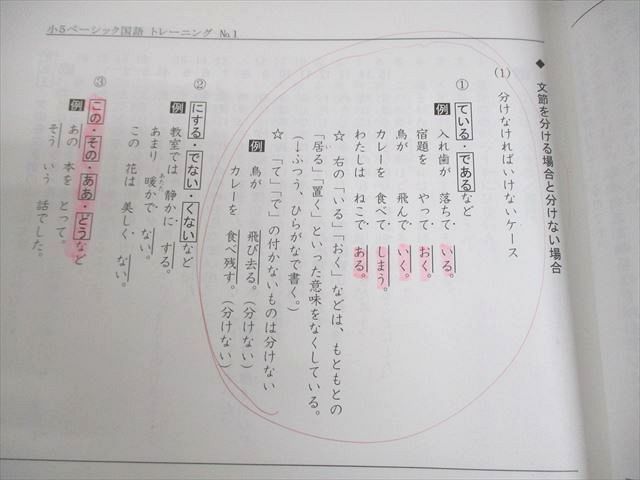 小5ベーシック国語 トレーニング No.1
◆ 文節を分ける場合と分けない場合
(1) 分けなければいけないケース
① ている・であるなど
例 入れ歯が 落ちて いる。
宿題を やって おく。
鳥が 飛んで いく。
カレーを 食べて しまう。
わたしは ねこで ある。
☆ 右の「いる」「おく」などは、もともとの
「居る」「置く」といった意味をなくしている。
(→ふつう、ひらがなで書く。)
☆ 「て」「で」の付かないものは分けない
例 鳥が 飛び去る。(分けない)
カレーを 食べ残す。(分けない)
② にする・でない・くないなど
例 教室では 静かに する。
あまり 暖かで ない。
この 花は 美しく ない。
③ この・その・ああ・どうなど
例 あの 本を とって。
そう いう 話でした。